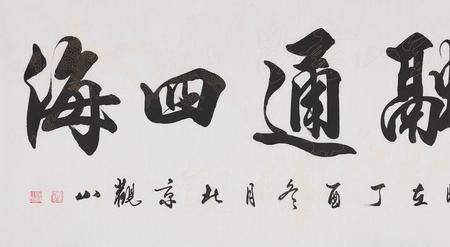 融通四海
時在丁酉冬月北京觀山